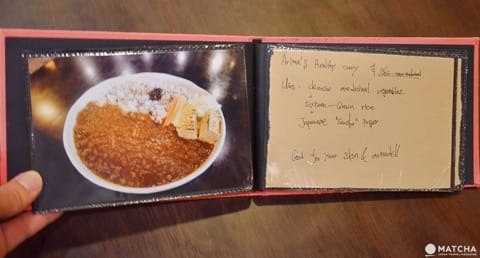 Arima's Healthy curry
Uses - chinese medicinal vegetables
+
sixteen - Grain rice
+
Japanese "Sansho" Pepper
Good for your skin &
MATCHA
JAPAN TRAVEL MAGAZINE